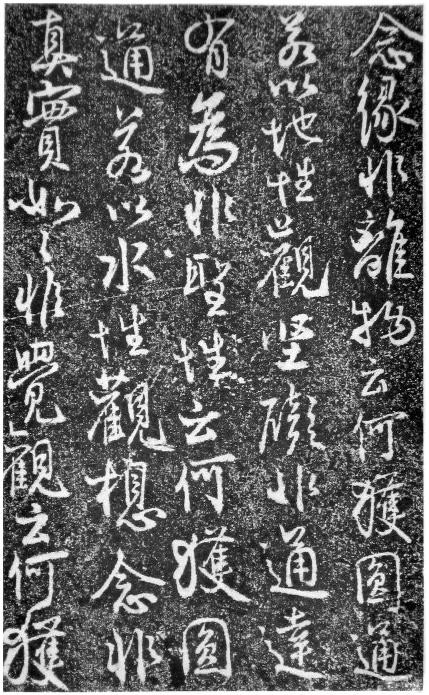 念緣非離物云何獲圓通
若以地性觀堅礙非通達
有為非聖性云何獲圓
通若以水性觀想念非
真實如々非覺觀云何獲